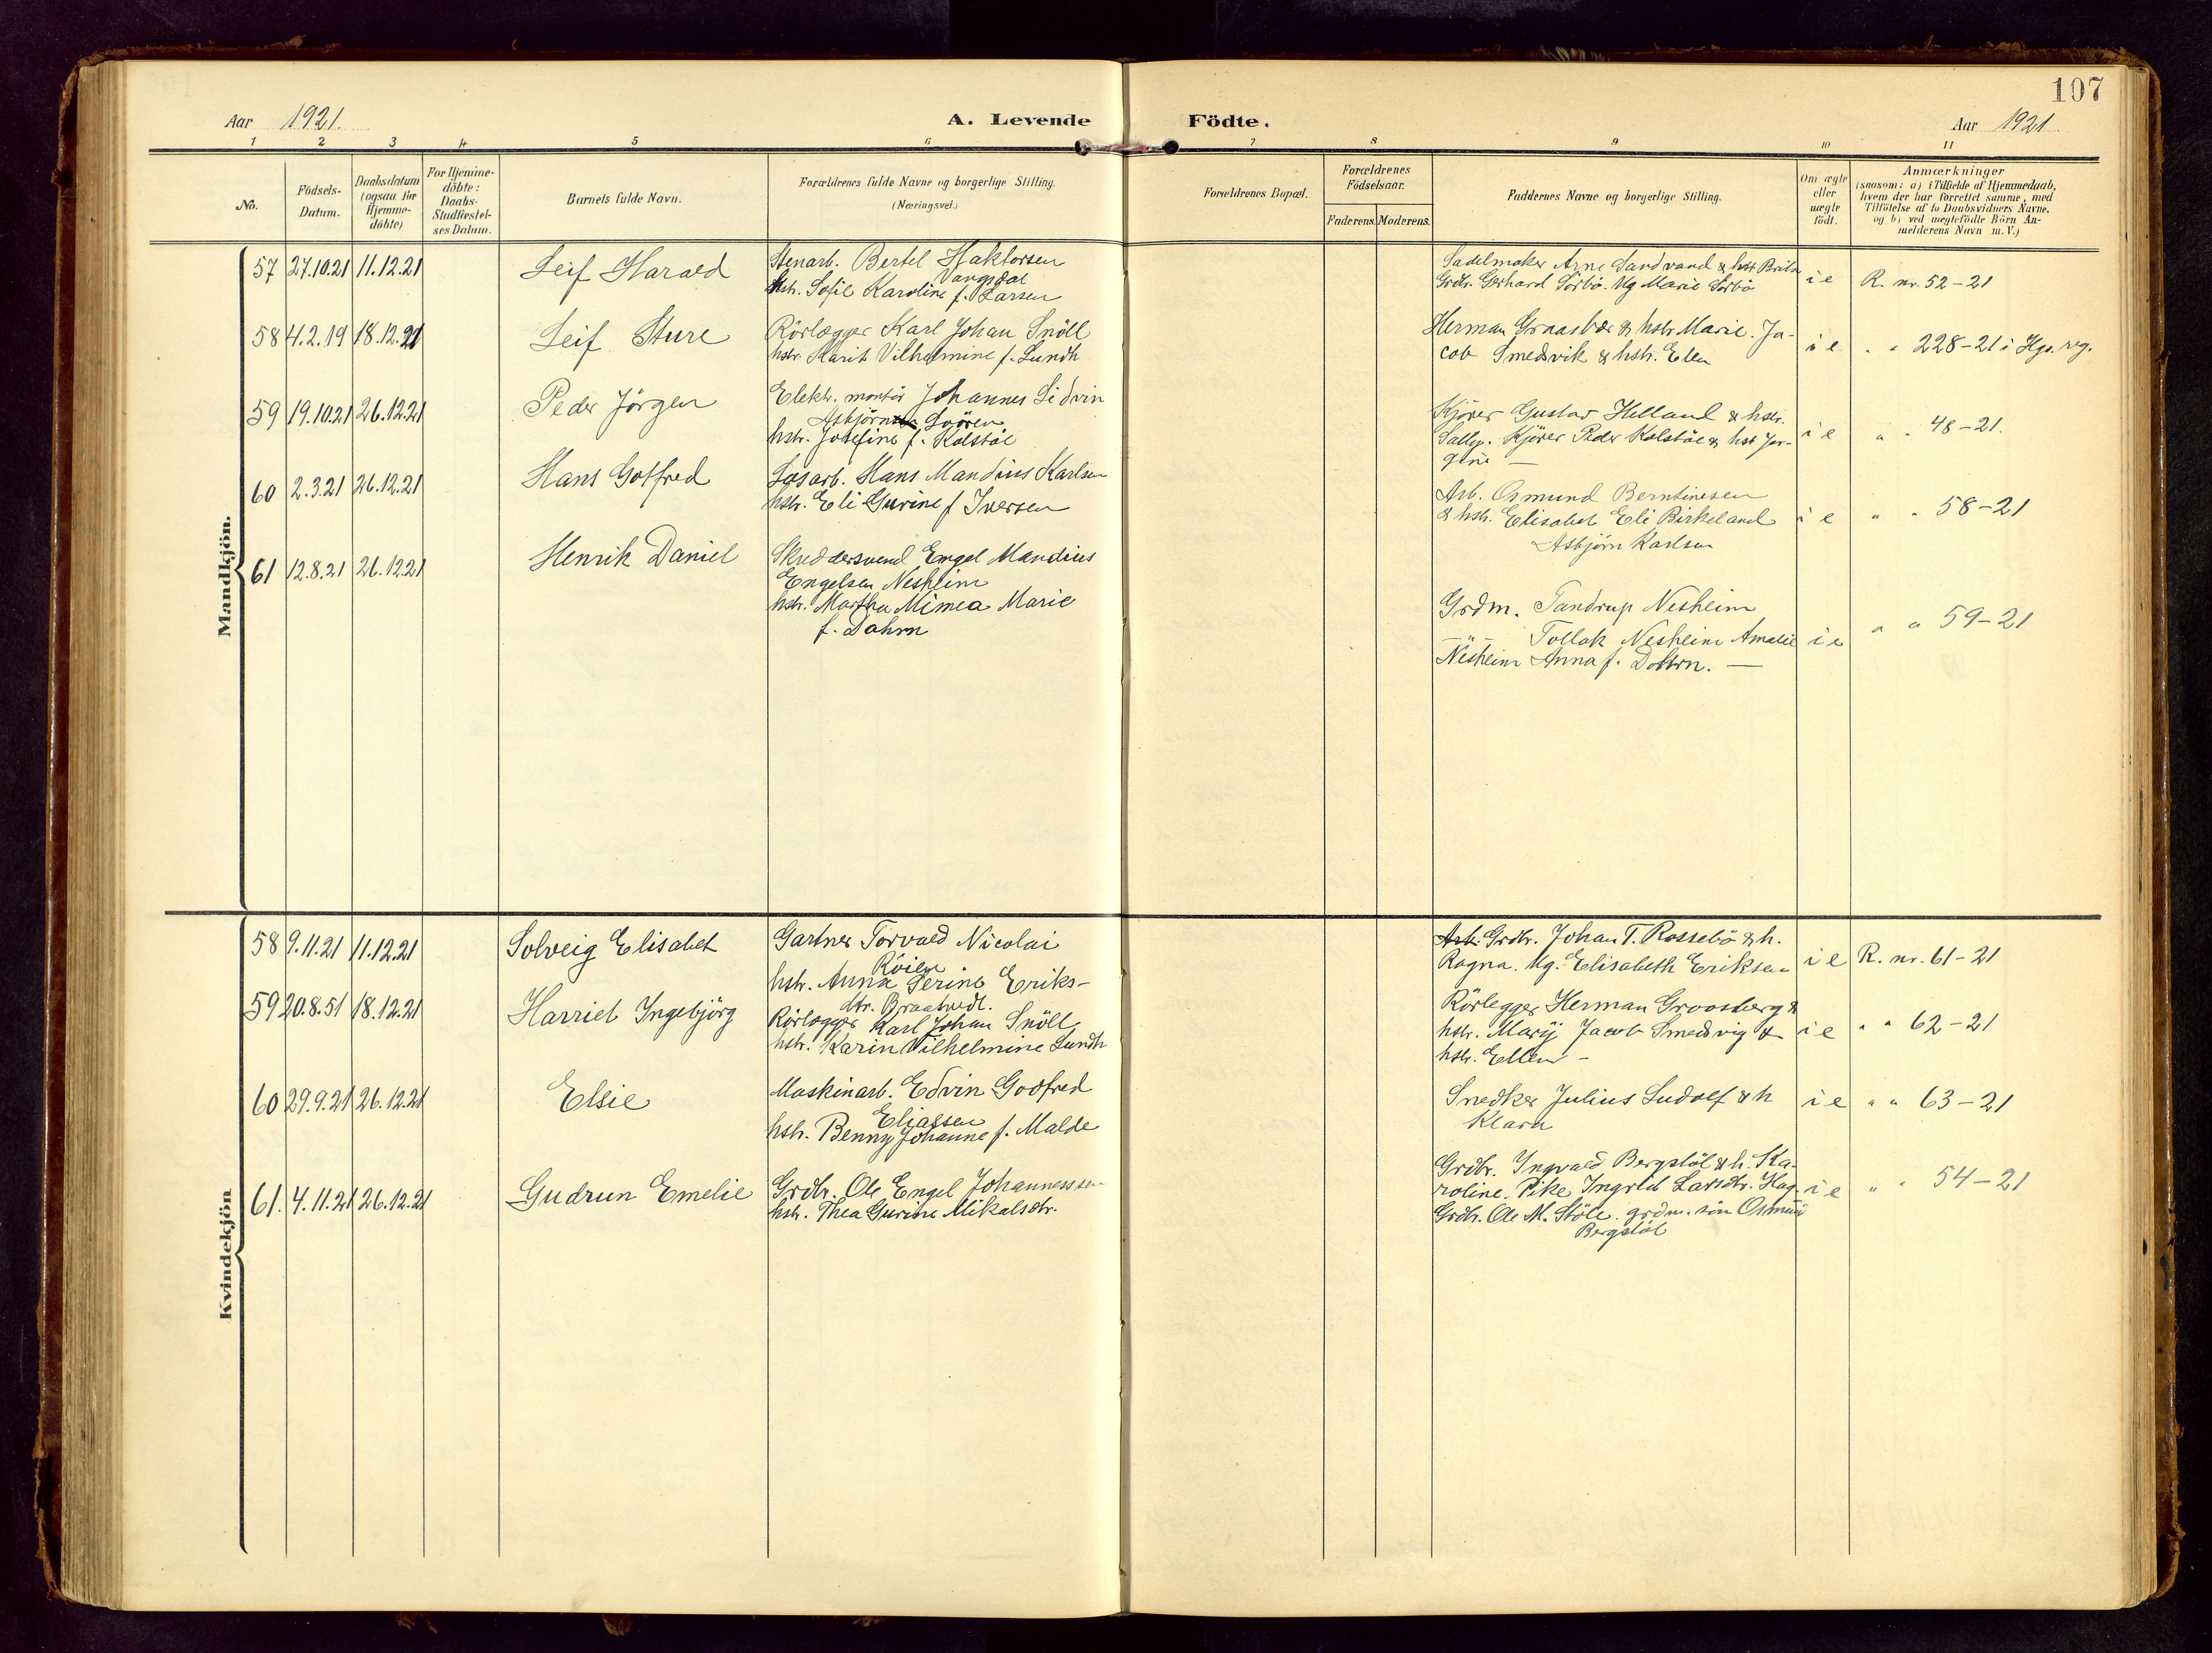 107
Aar 1921. A. Levende Födte. Aar 1921
1 2 3 4 5 6 7 8 9 10 11
No.
Födsels-
Datum.
Daabsdatum
(ogsaa for
Hjemme-
döbte)
For Hjemme-
döbte:
Daabs-
Stadfæstel-
ses Datum.
Barnets fulde Navn.
Forældrenes fulde Navne og borgerlige Stilling.
(Næringsvei.)
Forældrenes Bopæl.
Forældrenes
Födselsaar.
Faderens. Moderens.
Faddernes Navne og borgerlige Stilling.
Om ægte
eller
uægte
födt.
Anmærkninger
(saasom: a) i Tilfælde af Hjemmedaab,
hvem der har forrettet samme, med
Tilföielse af to Daabsvidners Navne.
og b) ved uægtefödte Börn An-
melderens Navn m. V.)
Mandkjön.
57 27.10.21 11.12.21 Leif Harald
Stenarb. Bertel Haktorsen
Vangsdal
hstr. Sofie Karoline f. Larsen
Sadelmaker Arne Sandvand & hstr Brita
Grdbr. Gerhard Sörbö. Ug Marie Sörbö
i e R. nr. 52-21
58 4.2.19 18.12.21 Leif Sture
Rörlægger Karl Johan Snöll
hstr. Karin Vilhelmine f. Lundh
Herman Graasber & hstr Marie. Ja-
cob Smedsvik & hstr. Elen
i e " " 228-21 i Hgs. reg.
59 19.10.21 26.12.21 Peder Jörgen
Elektr. montör Johannes Lidvin
Asbjörn
hstr. Josefine f. Kolstöe
Kjörer Gustav Helland & hstr.
Kjörer Peder Kolstöe & hstr Jör-
gine —
i e " " 48-21.
60 2.3.21 26.12.21 Hans Gotfred
Løsarb. Hans Mandius Karlsen
hstr. Eli Gurine f Iversen
Arb. Osmund Berntinesen
& hstr. Elisabet Eli Birkeland
Asbjörn Karlsen
i e " " 58-21
61 12.8.21 26.12.21 Henrik Daniel
Skreddersvend Engel Mandius
Engelsen Nesheim
hstr. Martha Mimea Marie
f. Dahrn
Grdm. Tandrup Nesheim
— " — Tollak Nesheim Amalie
Nesheim Anna f. Dohrn. —
i e " " 59-21
Kvindekjön
58 9.11.21 11.12.21 Solveig Elisabet
Gartner Torvald Nicolai
Röier
hstr. Anna Serine Eriks-
dtr. Braatvedt.
Grdbr. Johan T. Rossebö & h.
Ragna. Ug. Elisabeth Eriksen
i e R. nr. 61-21
59 20.8.51 18.12.21 Harriet Ingebjörg
Rörlægger Karl Johan Snöll
hstr. Karin Vilhelmine Lundh
Rörlegger Herman Groosberg &
hstr. Marij Jacob Smedsvig &
hstr. Ellen -
i e " " 62-21
60 29.9.21 26.12.21 Elsie
Maskinarb. Edvin Godfred
Eliassen
hstr. Benny Johanne f. Malde
Snedker Julius Ludolf & h
Klara
i e " " 63-21
61. 4.11.21 26.12.21 Gudrun Emelie
Grdbr. Ole Engel Johannessen
hstr. Thea Gurine Mikalsdtr.
Grdbr. Ingvald Bergstöl & h. Ka-
roline. Pike Ingrid Larsdtr. Hag.
Grdbr. Ole M. Stöle. grdm. sön Osmund
Bergstöl
i e " " 54-21